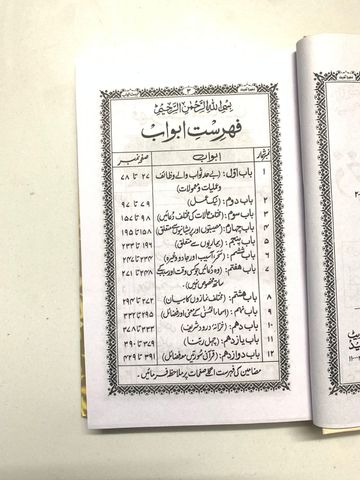 ۳
بسم اللہ الرحمٰن الرحیم
فہرستِ ابواب
نمبر شمار ابواب صفحہ نمبر
۱ باب اوّل: (بے حد ثواب والے وظائف ۲۷ تا ۷۸
وعملیات و معمولات
۲ باب دوم: (نیک عمل) ۷۹ تا ۹۷
۳ باب سوم: (مختلف حالات کی مختلف دعائیں) ۹۸ تا ۱۵۷
۴ باب چہارم: (مصیبتوں اور پریشانیوں سے متعلق) ۱۵۸ تا ۱۹۵
۵ باب پنجم: (بیماریوں سے متعلق) ۱۹۶ تا ۲۳۳
۶ باب ششم: (سحر، آسیب اور جادو وغیرہ) ۲۳۴ تا ۲۴۷
۷ باب ہفتم: (وہ دعائیں جو کسی وقت اور سبب کے ۲۴۸ تا ۲۷۱
ساتھ مخصوص نہیں)
۸ باب ہشتم: (مختلف نمازوں کا بیان) ۲۷۲ تا ۲۹۴
۹ باب نہم: (اسماء الحسنٰی کے معنی اور فضائل) ۲۹۵ تا ۳۳۲
۱۰ باب دہم: (خزانۂ درود شریف) ۳۳۳ تا ۳۷۸
۱۱ باب یازدہم: (چہل ربنا) ۳۷۹ تا ۳۹۰
۱۲ باب دوازدہم: (قرآنی سورتیں مع فضائل) ۳۹۱ تا ۴۲۹
مضامین کی فہرست اگلے صفحات پر ملاحظہ فرمائیں۔